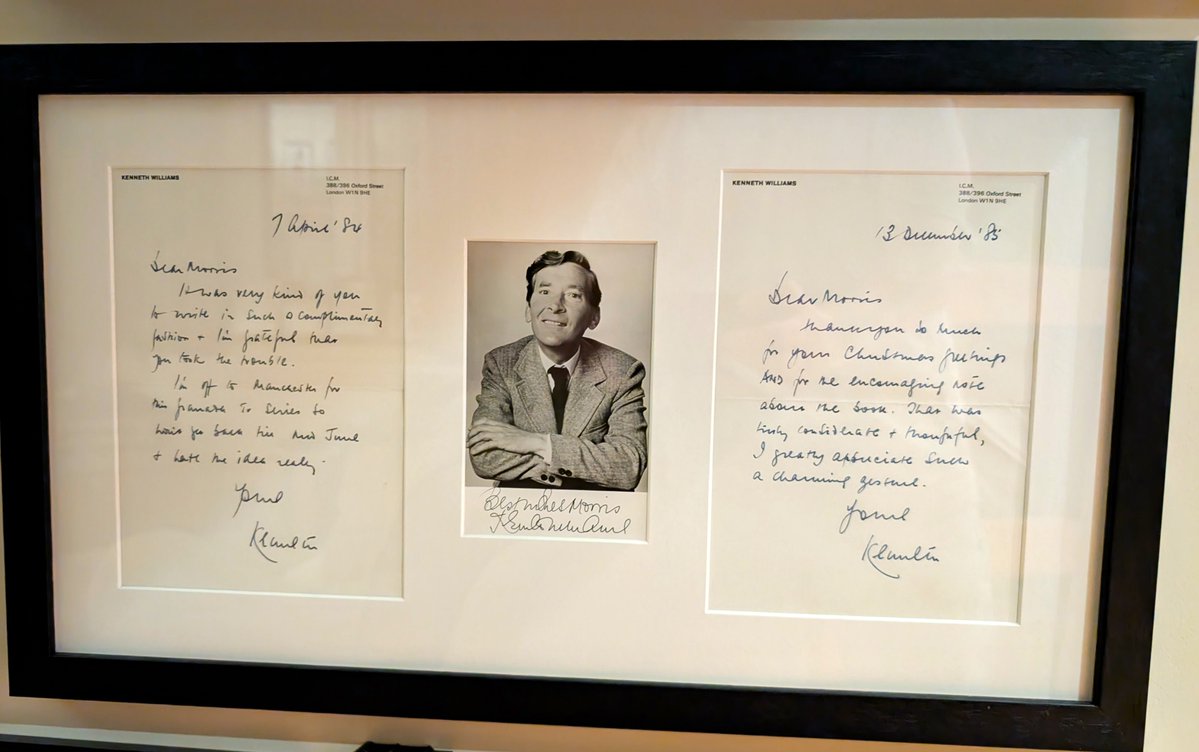 KENNETH WILLIAMS
I.C.M.
388/396 Oxford Street
London W1N 9HE
7 April '84
Dear Morris
It was very kind of you
to write in such a complimentary
fashion + I'm grateful that
you took the trouble.
I'm off to Manchester for
this Granada TV Series so
won't be back till mid June
+ hate the idea really.
Yours
Kenneth
Best wishes Morris
Kenneth Williams
KENNETH WILLIAMS
I.C.M.
388/396 Oxford Street
London W1N 9HE
13 December '85
Dear Morris
thankyou so much
for your Christmas greetings
And for the encouraging note
about the book. That was
truly considerate + thoughtful,
I greatly appreciate such
a charming gesture.
Yours
Kenneth